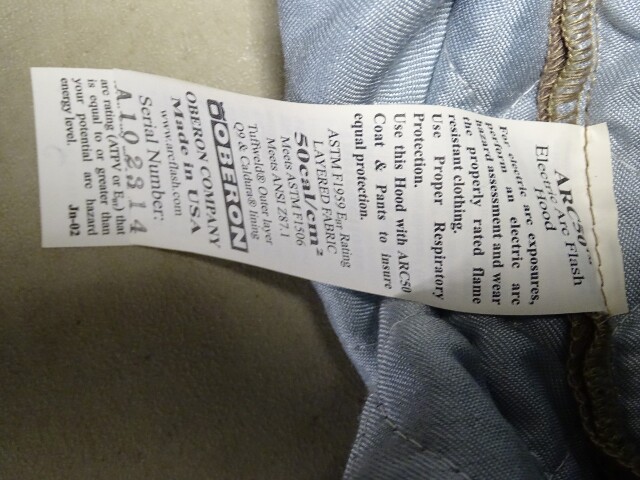 ARC50™
Electric Arc Flash
Hood
For electric arc exposures,
perform an electric arc
hazard assessment and wear
the properly rated flame
resistant clothing.
Use Proper Respiratory
Protection.
Use this Hood with ARC50
Coat & Pants to insure
equal protection.
ASTM F1959 EBT Rating
LAYERED FABRIC
50cal/cm²
Meets ASTM F1506
Meets ANSI Z87.1
Tuffweld® Outer layer
Q9 & Caldura® lining
OBERON
OBERON COMPANY
Made in USA
www.arcflash.com
Serial Number:
A192314
arc rating (ATPV or EBT) that
is equal to or greater than
your potential arc hazard
energy level. Jn-02